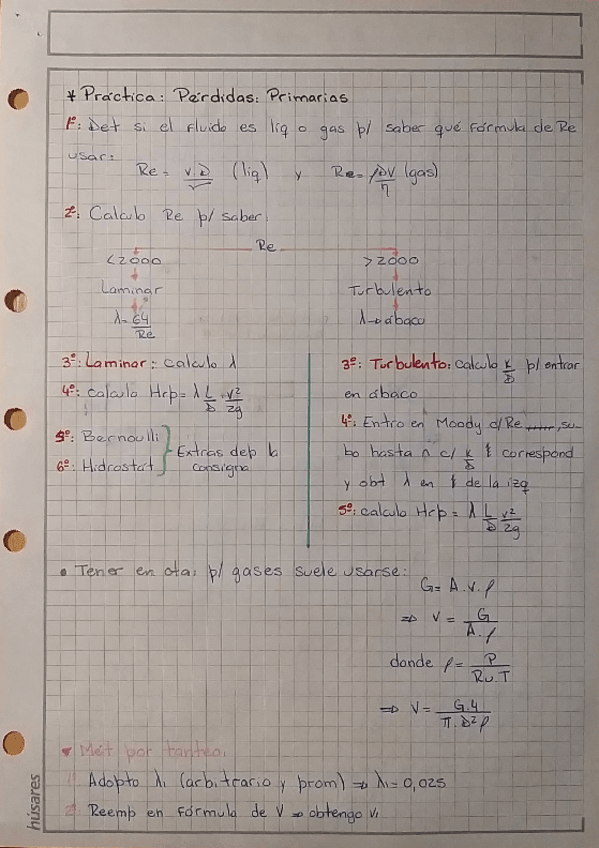 * Práctica: Pérdidas: Primarias
1º: Det si el fluido es líq o gas p/ saber qué fórmula de Re
usar:
Re = v.D/√ (líq) y Re = ρDV/η (gas)
2º: Calculo Re p/ saber:
Re
<2000 >2000
Laminar Turbulento
λ = 64/Re λ→ábaco
3º: Laminar: calculo λ
4º: calculo Hrp = λ L/D v²/2g
5º: Bernoulli
6º: Hidrostát
Extras dep la
consigna
3º: Turbulento: calculo K/D p/ entrar
en ábaco
4º: Entro en Moody c/Re, su-
bo hasta ∩ c/ K/D correspond
y obt λ en de la izq
5º: calculo Hrp = λ L/D v²/2g
• Tener en cta: p/ gases suele usarse:
G = A.v.ρ
⇒ V = G/A.ρ
donde ρ = P/Ru.T
⇒ V = G.4/π.D²ρ
♥ Mét por tanteo:
1 Adopto λ₁ (arbitrario y prom) ⇒ λ₁ = 0,025
2 Reemp en fórmula de V ⇒ obtengo V₁
húsares